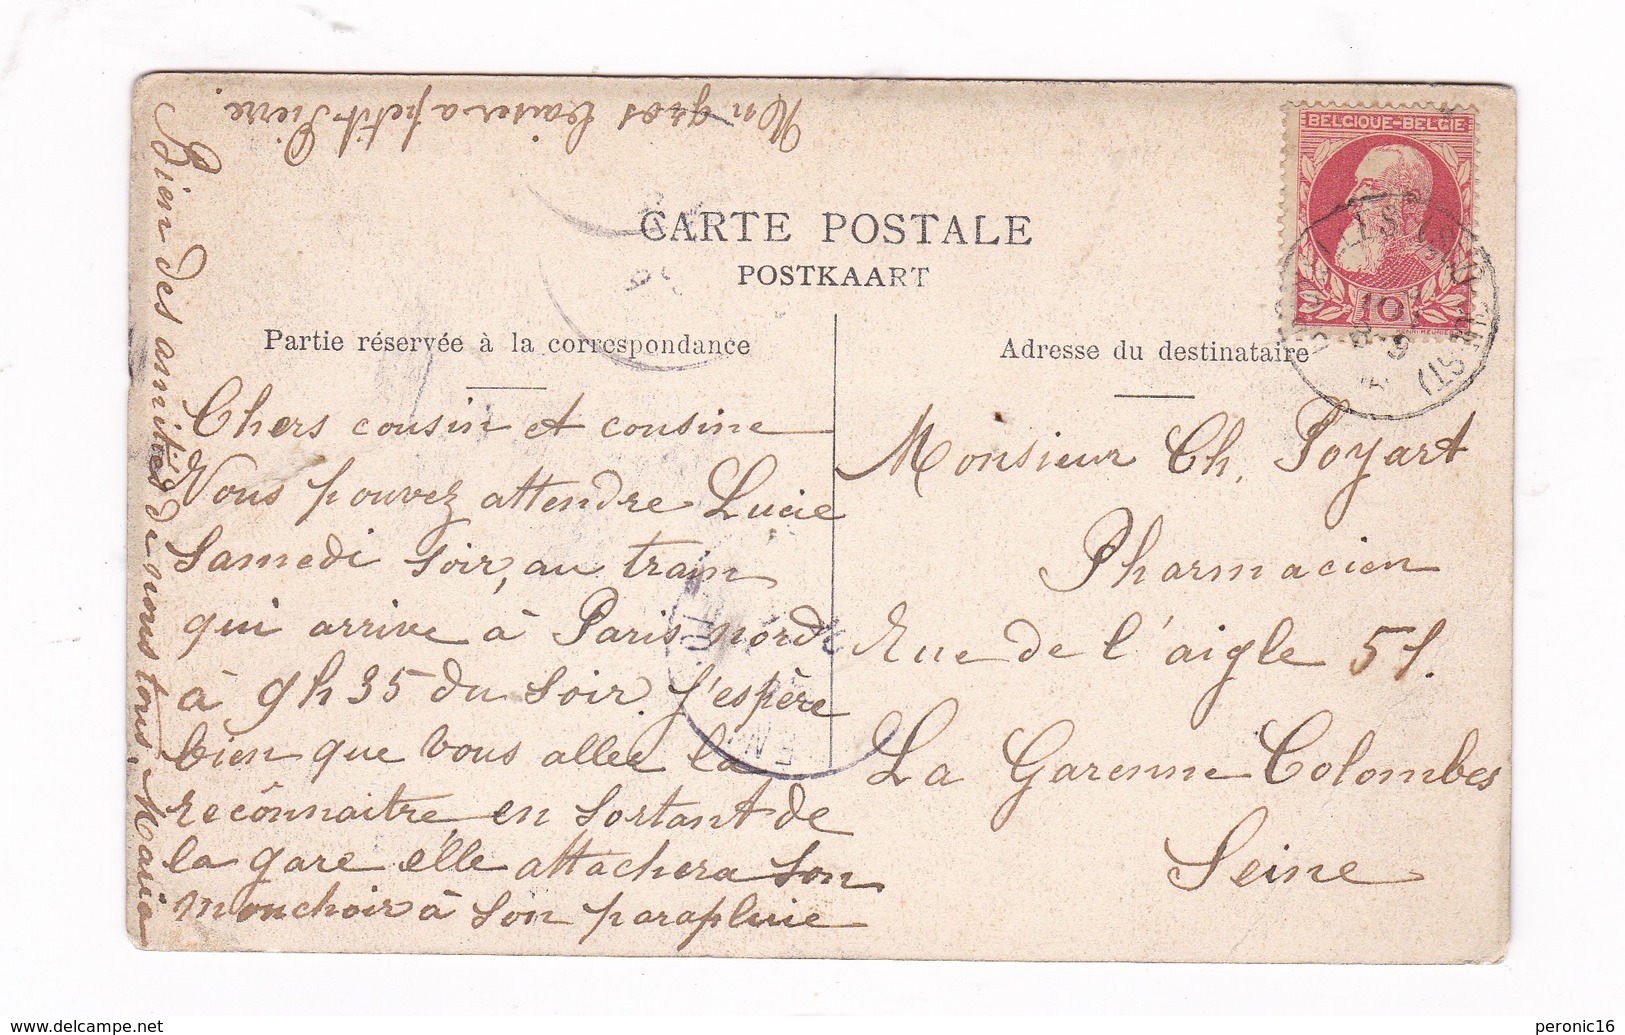 Un gros baiser a petit Pierre.
BELGIQUE-BELGIE
10
CARTE POSTALE
POSTKAART
Partie réservée à la correspondance
Adresse du destinataire
Chers cousin et cousine
Vous pouvez attendre Lucie
Samedi soir, au train
qui arrive à Paris nord
à 9h35 du soir. J'espère
bien que vous allee la
reconnaitre, en sortant de
la gare elle attachera son
mouchoir à son parapluie
Bien des amitiés de nous tous. Maria
Monsieur Ch. Poyart
Pharmacien
Rue de l'aigle 51.
La Garenne Colombes
Seine
www.delcampe.net
peronic16